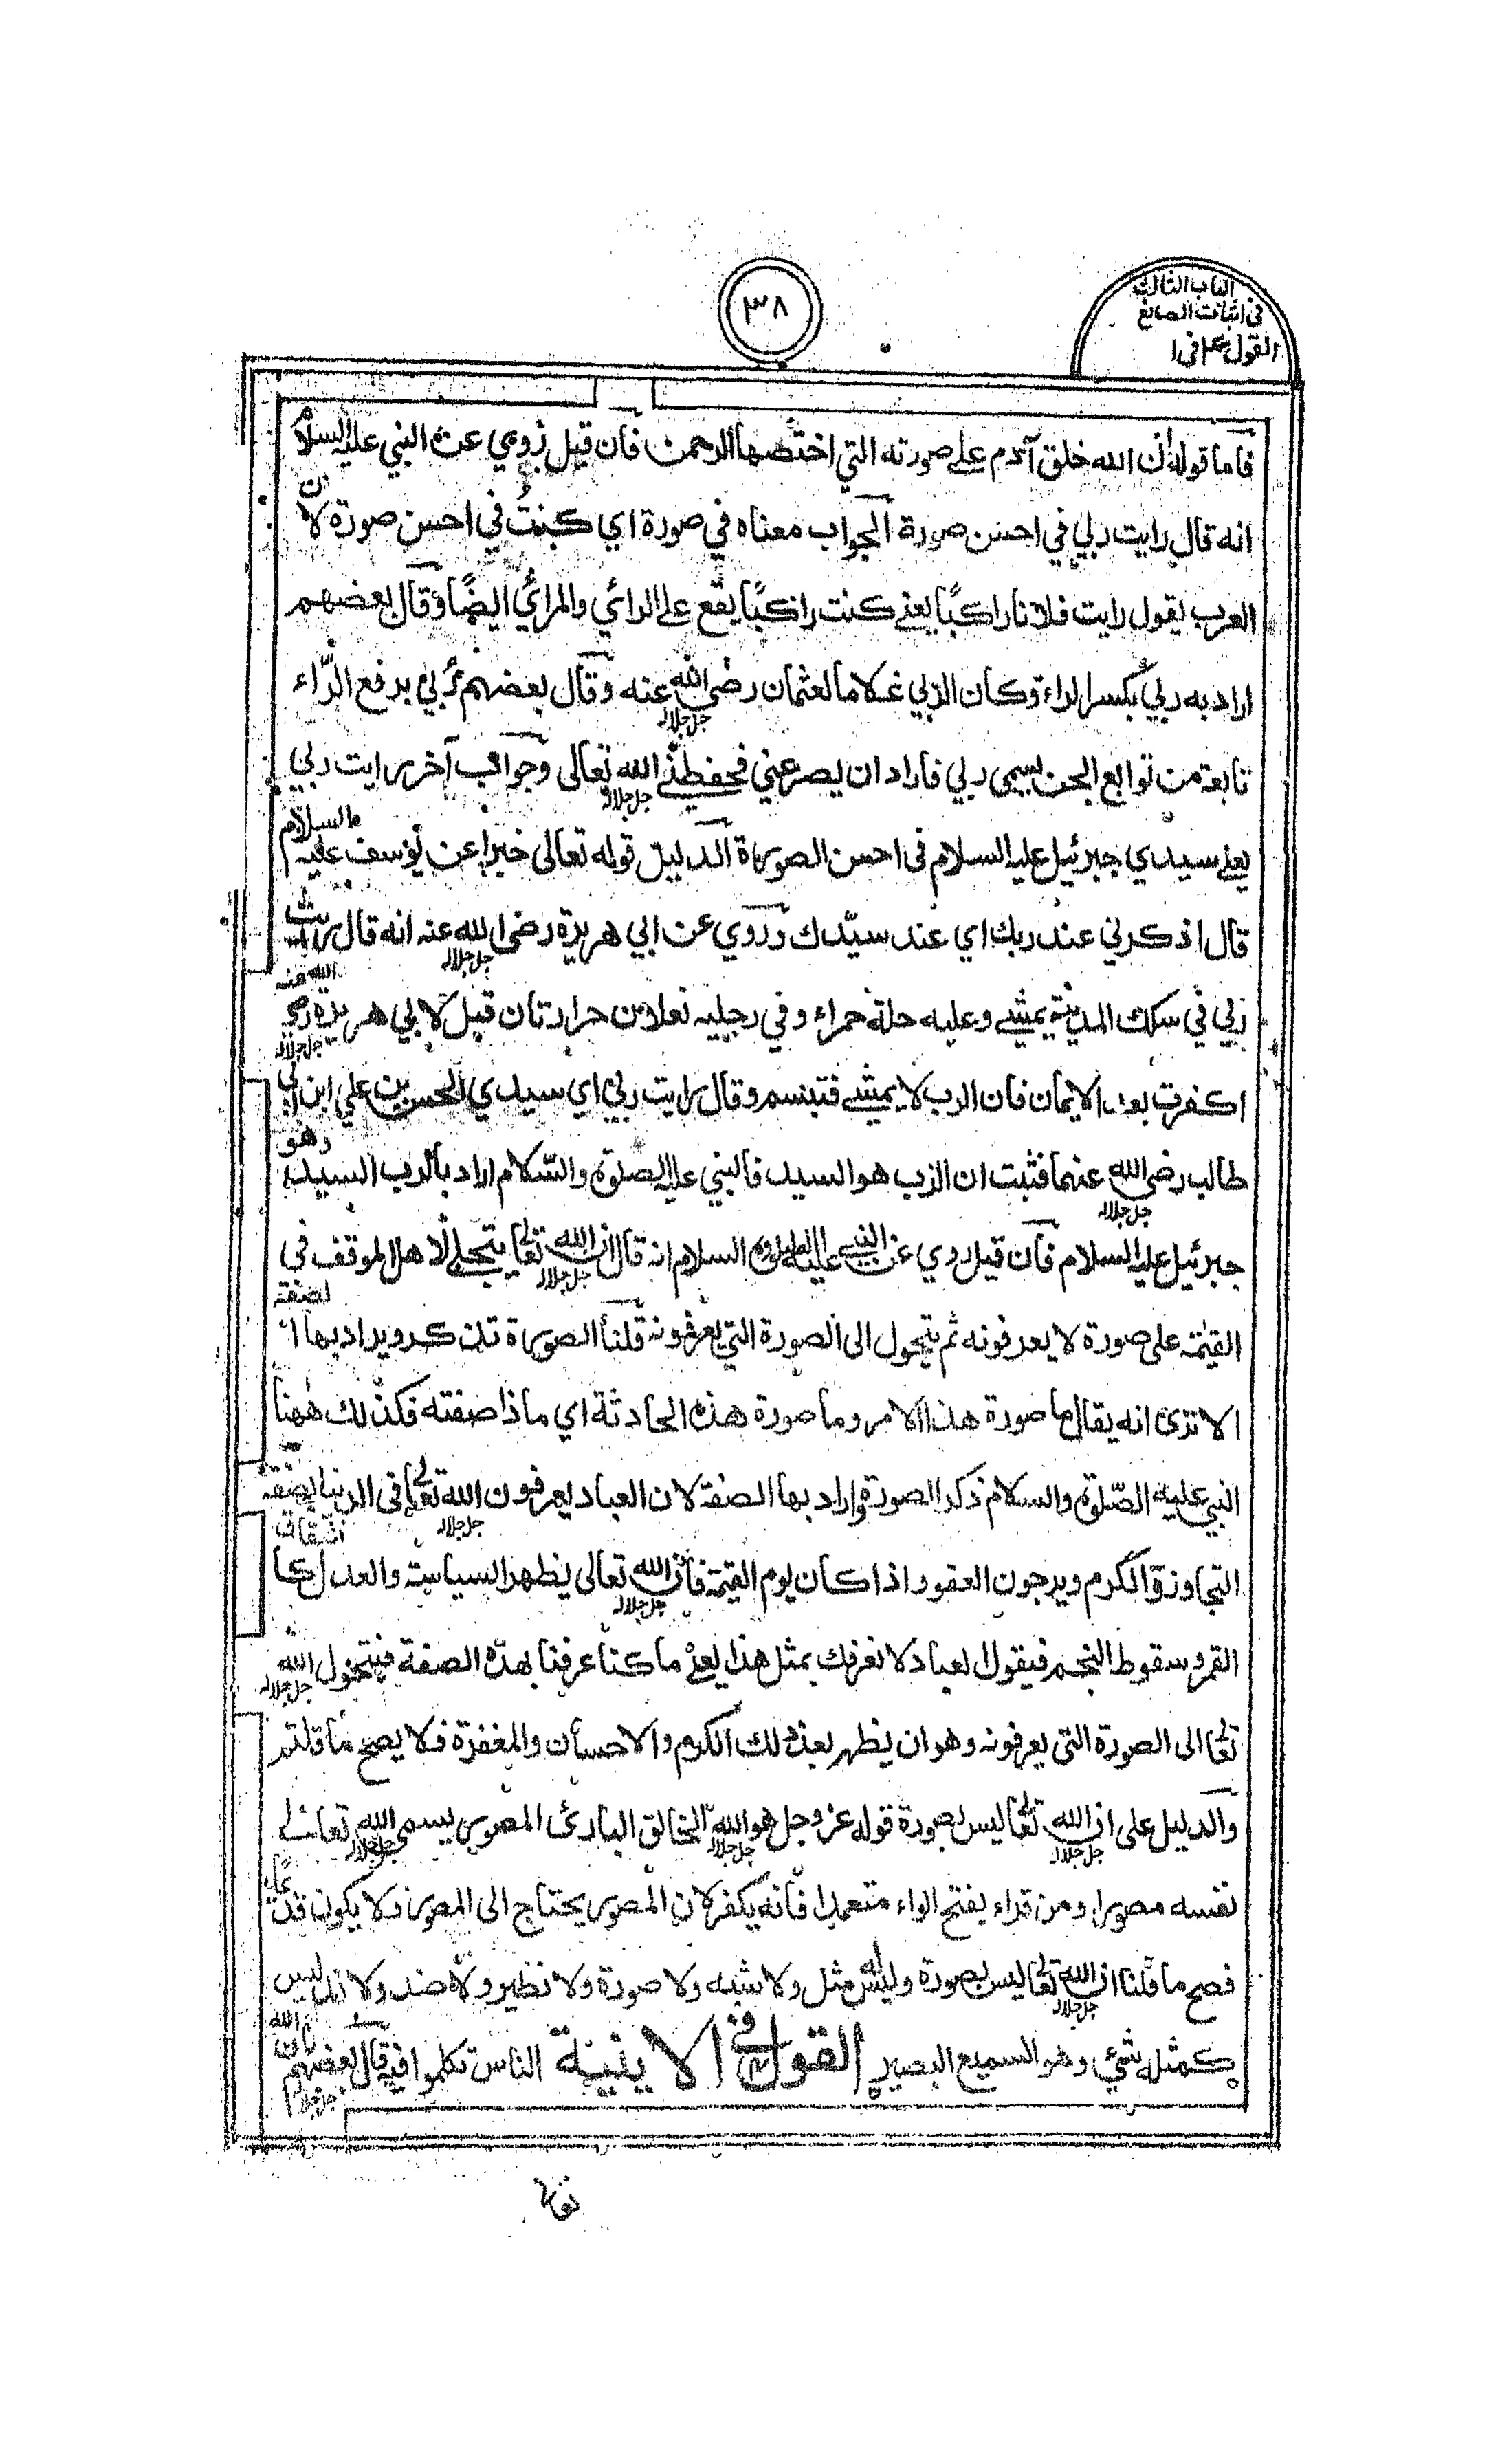 ٣٨
الباب الثالث
في اثبات الصانع
القول في ا
فاما قوله ان الله خلق آدم على صورته التي اختصها الرحمن فان قيل روي عن النبي عليه السلام
انه قال رايت ربي في احسن صورة الجواب معناه في صورة اي كنتُ في احسن صورة لان
العرب يقول رايت فلانا راكبًا يعني كنت راكبًا يقع على الرائي والمرائي ايضًا وقال بعضهم
اراد به ربي بكسر الراء وكان الربي غلاما لعثمان رضي الله عنه وقال بعضهم رُبي برفع الرّاء
جل جلاله
تابعة من توابع الجن يسمى ربي فاراد ان يصرعني فحفظني الله تعالى وجواب آخر رايت ربي
جل جلاله
يعني سيدي جبرئيل عليه السلام في احسن الصورة الدليل قوله تعالى خبرا عن يوسف عليه السلام
قال اذكرني عند ربك اي عند سيّدك وروي عن ابي هريرة رضي الله عنه انه قال رايت
جل جلاله
ربي في سكك المدينة يمشي وعليه حلة حمراء وفي رجليه نعلان من حرارتان قيل لابي هريرة رضي الله عنه
جل جلاله
اكفرت بعد الايمان فان الرب لا يمشي فتبسم وقال رايت ربي اي سيدي الحسن بن علي ابن ابي
طالب رضي الله عنهما فثبت ان الرب هو السيد فالنبي عليه الصلوة والسّلام اراد بالرب السيد وهو
جل جلاله
جبرئيل عليه السلام فان قيل روي عن النبي عليه الصلوة والسلام انه قال ان الله تعالى يتجلى لاهل الموقف في
جل جلاله
القيمة على صورة لا يعرفونه ثم يتحول الى الصورة التي يعرفونه قلنا الصورة تذكر ويراد بها الصفة
الا ترى انه يقال ما صورة هذا الامر وما صورة هذه الحادثة اي ماذا صفته فكذلك ههنا
النبي عليه الصّلوة والسلام ذكر الصورة واراد بها الصفة لان العباد يعرفون الله تعالى في الدنيا بصفة
جل جلاله
التجاوز والكرم ويرجون العفو واذا كان يوم القيمة فان الله تعالى يظهر السياسة والعدل كانشقاق
جل جلاله
القمر وسقوط النجم فيقول العباد لا نعرفك بمثل هذا يعني ما كنا عرفنا بهذه الصفة فيتحول الله
جل جلاله
تعالى الى الصورة التي يعرفونه وهو ان يظهر بعد ذلك الكرم والاحسان والمغفرة فلا يصح ما قلتم
والدليل على ان الله تعالى ليس بصورة قوله عز وجل هو الله الخالق البارئ المصور يسمى الله تعالى
جل جلاله جل جلاله جل جلاله
نفسه مصورا ومن قراء بفتح الواء متعمدا فانه يكفر لان المصور يحتاج الى المصور فلا يكون قديما
فصح ما قلنا ان الله تعالى ليس بصورة وليس له مثل ولا شبه ولا صورة ولا نظير ولا ضد ولا ند ليس
جل جلاله
كمثله شيء وهو السميع البصير القول في الاينية الناس تكلموا فيه قال بعضهم بان الله
جل جلاله
تعالى